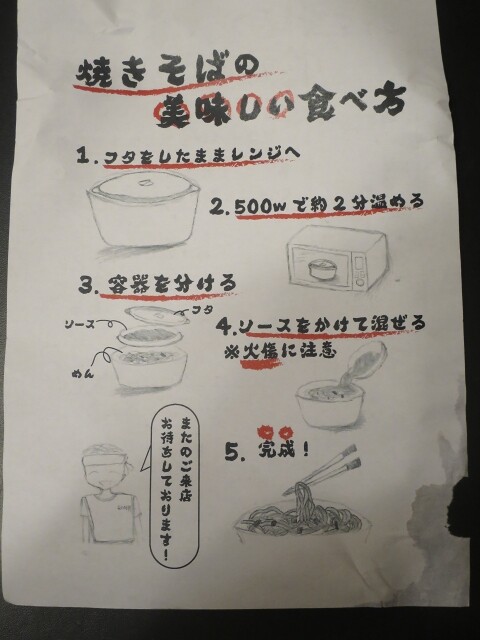 焼きそばの
美味しい食べ方
1.フタをしたままレンジへ
2.500wで約2分温める
3.容器を分ける
フタ
ソース
めん
4.ソースをかけて混ぜる
※火傷に注意
5.完成！
またのご来店
お待ちしております！